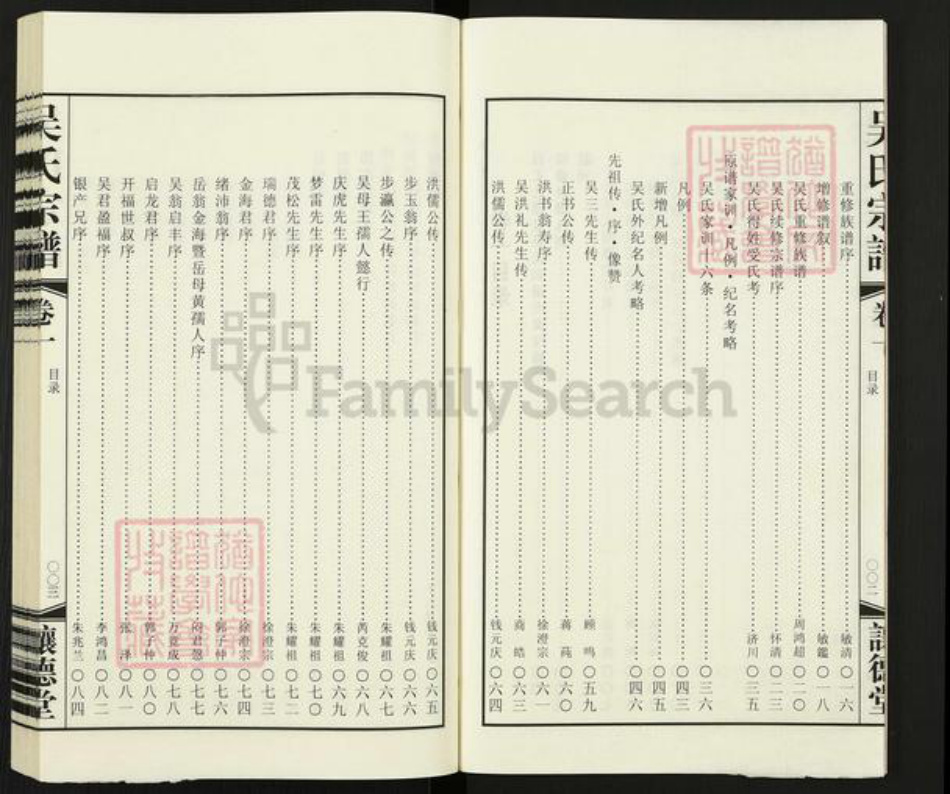 吴氏宗谱
卷一
目录
〇〇二
让德堂
重修族谱序 敏清 〇一六
增修谱叙 敏鑑 〇一八
吴氏重修族谱 周鸿超 〇二〇
吴氏续修宗谱序 怀清 〇二三
吴氏得姓受氏考 济川 〇三五
原谱家训·凡例·纪名考略
吴氏家训十六条 〇三六
凡例 〇四三
新增凡例 〇四五
吴氏外纪名人考略 〇四六
先祖传·序·像赞
吴三先生传 顾鸣 〇五九
正书公传 蒋莼 〇六〇
洪书翁寿序 徐澄宗 〇六一
吴洪礼先生传 商皓 〇六三
洪儒公传 钱元庆 〇六四
洪儒公传 钱元庆 〇六五
步玉翁序 钱元庆 〇六六
步瀛公之传 朱耀祖 〇六七
吴母王孺人懿行 芮克俊 〇六八
庆虎先生序 朱耀祖 〇六九
梦雷先生序 朱耀祖 〇七〇
茂松先生序 朱耀祖 〇七二
瑞德君序 徐澄宗 〇七三
金海君序 徐澄宗 〇七四
绪沛翁序 郭子仲 〇七六
岳翁金海暨岳母黄孺人序 〇七七
吴翁启丰序 万竟成 〇七八
启龙君序 郭子仲 〇八〇
开福世叔序 张泽 〇八一
吴君盈福序 李鸿昌 〇八二
银产兄序 朱兆兰 〇八四
吴氏宗谱
卷一
目录
〇〇三
让德堂
FamilySearch